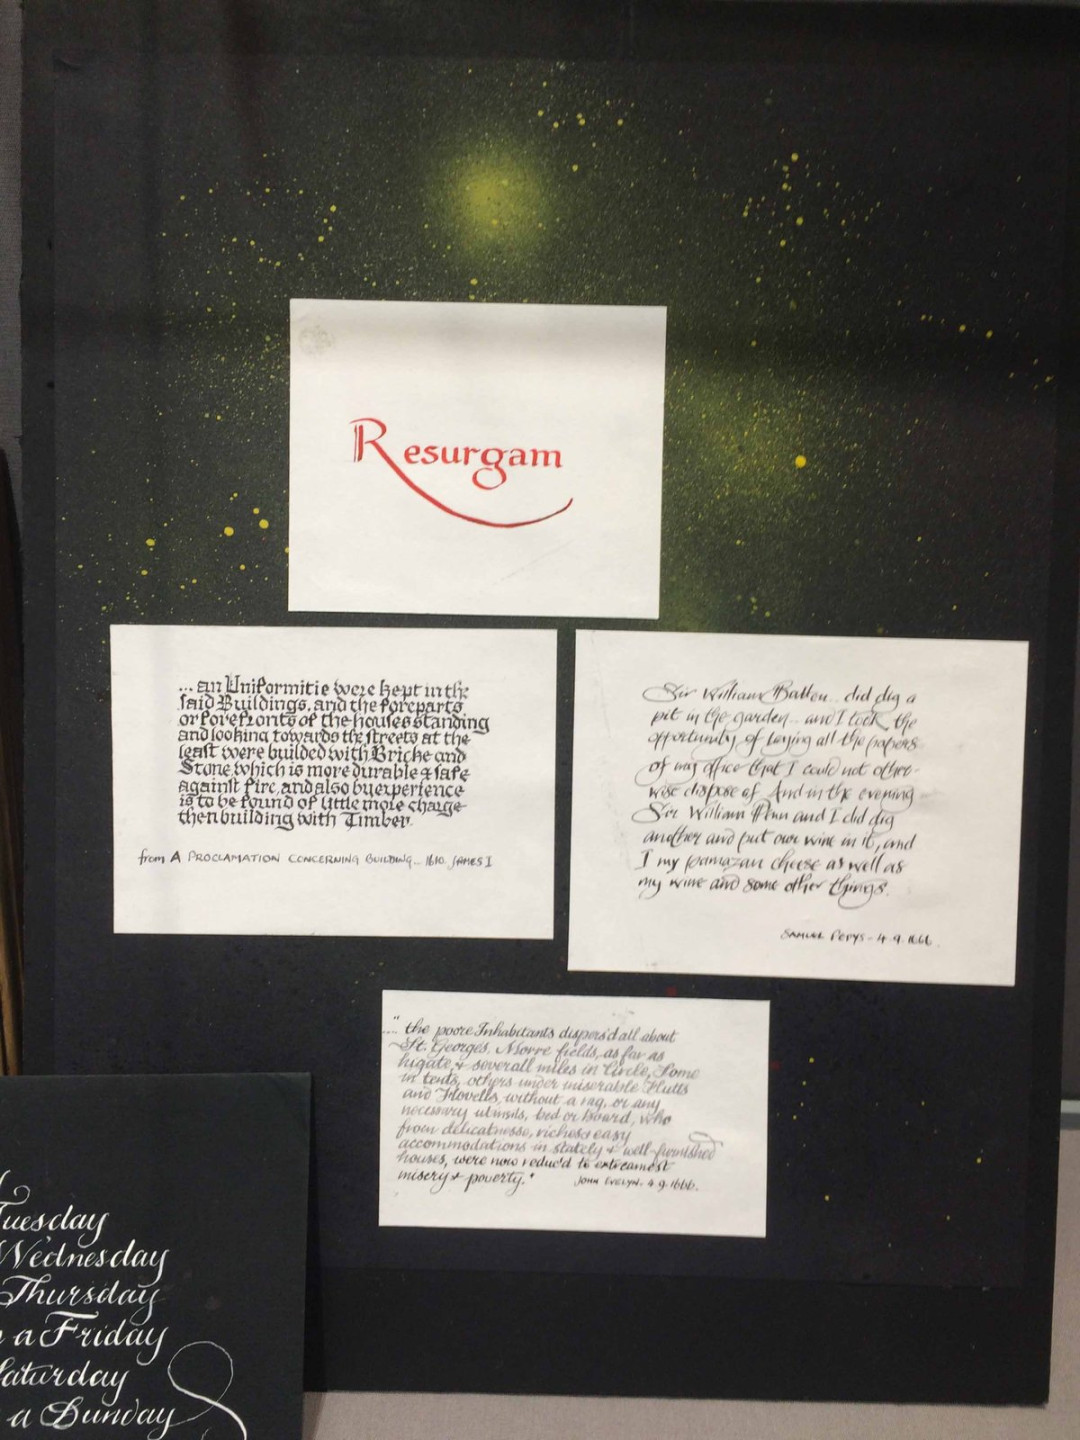 Resurgam
... an Uniformitie were kept in the
said Buildings, and the foreparts
or forefronts of the houses standing
and looking towards the streets at the
least were builded with Bricke and
Stone, which is more durable & safe
against fire, and also by experience
is to be found of little more charge
then building with Timber.
from A PROCLAMATION CONCERNING BUILDING... 1610. JAMES I
Sir William Batten... did dig a
pit in the garden... and I took the
opportunity of laying all the papers
of my office that I could not other-
wise dispose of. And in the evening
Sir William Penn and I did dig
another and put our wine in it, and
I my parmazan cheese as well as
my wine and some other things.
SAMUEL PEPYS - 4.9.1666.
..." the poore Inhabitants dispers'd all about
St. Georges, Moore fields, as far as
higate, & severall miles in Circle, Some
in tents, others under miserable Hutts
and Hovells, without a rag, or any
necessary utinsils, bed or board, who
from delicatnesse, riches & easy
accommodations in stately & well-furnished
houses, were now reduc'd to extreamest
misery & poverty."
JOHN EVELYN - 4.9.1666.
Tuesday
Wednesday
Thursday
a Friday
Saturday
a Sunday